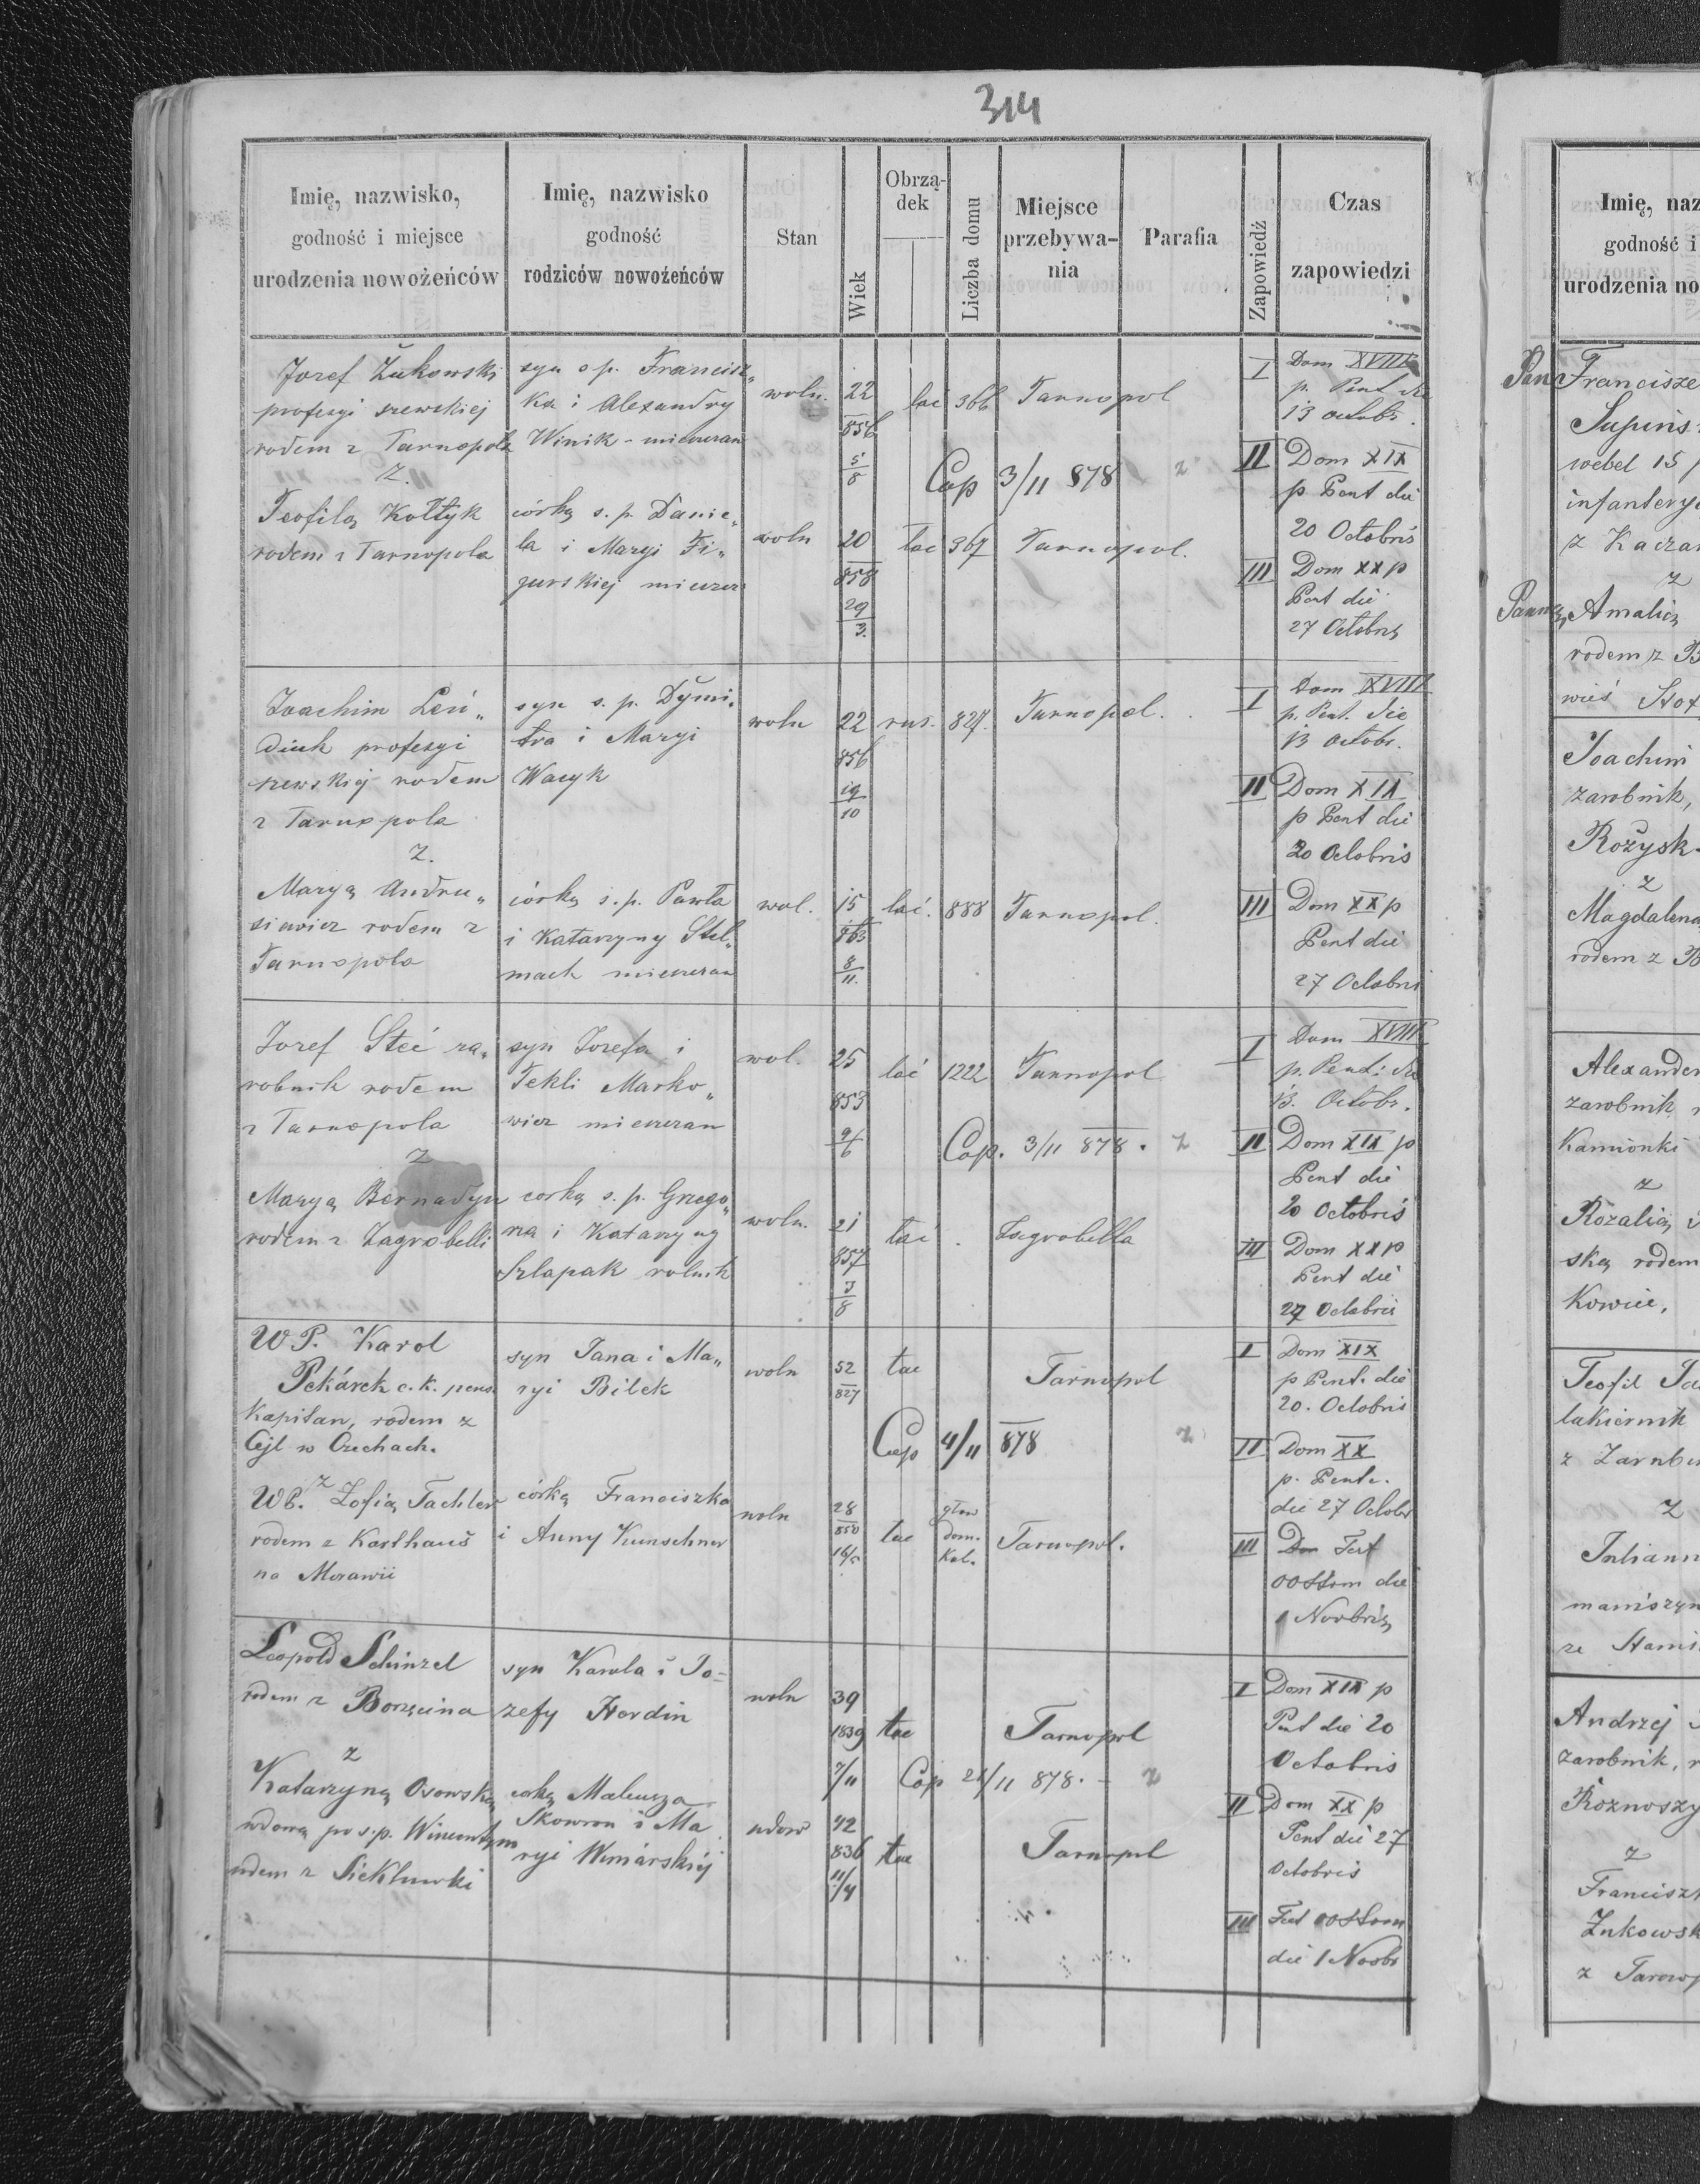 314
Imię, nazwisko,
godność i miejsce
urodzenia nowożeńców
Imię, nazwisko
godność
rodziców nowożeńców
Stan
Wiek
Obrzą-
dek
Liczba domu
Miejsce
przebywa-
nia
Parafia
Zapowiedź
Czas
zapowiedzi
Jozef Żukowski
profesyi szewskiej
rodem z Tarnopola
z.
Teofilą Kołtyk
rodem z Tarnopola
syn s p. Francisz„
ka i Alexandry
Winik - mieszczan
córką s. p. Danie„
la i Maryi Fi„
gurskiej mieszcz
woln. 22
856
5/8
łać 366 Tarnopol
Cop 3/11 878 z
woln 20
858
29/3.
łać 367 Tarnopol.
I Dom XVIII
p. Pent die
13 octobr.
II Dom XIX
p. Pent die
20 Octobris
III Dom XX p
Pent die
27 Octobris
Joachim Leń„
diuk profesyi
szewskiej rodem
z Tarnopola
z.
Maryą Andru„
siewicz rodem z
Tarnopola
syn s. p. Dymi„
tra i Maryi
Wacyk
córką s. p. Pawła
i Katarzyny Stel„
mach mieszczan
woln 22
856
19/10
rus. 827. Tarnopol.
wol. 15
863
8/11.
łać. 888 Tarnopol.
I Dom XVIII
p. Pent. die
13 Octobr.
II Dom XIX
p Pent die
20 Octobris
III Dom XX p
Pent die
27 Octobris
Jozef Steć za„
robnik rodem
z Tarnopola
z
Maryą Bernadyn
rodem z Zagrobelli
syn Jozefa i
Tekli Marko„
wicz mieszczan
corką s. p. Grzego„
rza i Katarzyny
Szlapak rolnik
wol. 25
853
9/6
łać 1222 Tarnopol
Cop. 3/11 878. z
woln. 21
857
3/8
łać. Zagrobella
I Dom XVIII
p. Pent. die
13. Octobr.
II Dom XIX p
Pent die
20 Octobris
III Dom XX p
Pent die
27 Octobris
WP. Karol
Pekárek c. k. pens.
Kapitan, rodem z
Cejl w Czechach.
z
WP. Zofią Tachler
rodem z Karthaus
na Morawii
syn Jana i Ma„
ryi Bilek
córką Franciszka
i Anny Kunschner
woln 52
827
łac Tarnopol
Cop 4/11 878 z
woln 28
850
16/5
łac
dom.
Kol.
Tarnopol.
I Dom XIX
p Pent. die
20. Octobris
II Dom XX
p. Pente.
die 27 Octobr
III Dom Fest
OOSSrom die
1 Novbris
Leopold Schinzel
rodem z Borzęcina
z
Katarzyną Osowską
wdową po s. p. Wincentym
rodem z Sieklówki
syn Karola i Jo-
zefy Herdin
corką Mateusza
Skowron i Ma
ryi Winiarskiej
woln 39
1839
7/11
łac Tarnopol
Cop 21/11 878. - z
wdow 42
836
11/4
łac Tarnopol
I Dom XIX p
Pent die 20
Octobris
II Dom XX p
Pent die 27
Octobris
III Fest OOSSrom
die 1 Novbr
Imię, naz
godność i
urodzenia no
Pan Francisze
Supińs
webel 15 p
infantery
z Kacza
z
Panną Amalią
rodem z B
wieś
Joachim
zarobnik,
Rożysk
z
Magdaleną
rodem z B
Alexander
zarobnik
Kamionki
z
Rozalią
ską rodem
Kowice,
Teofil
lakiernik
z
z
Juliann
ze Stanis
Andrzej
zarobnik, r
Roznoszy
z
Francisz
Żukowsk
z Tarnop